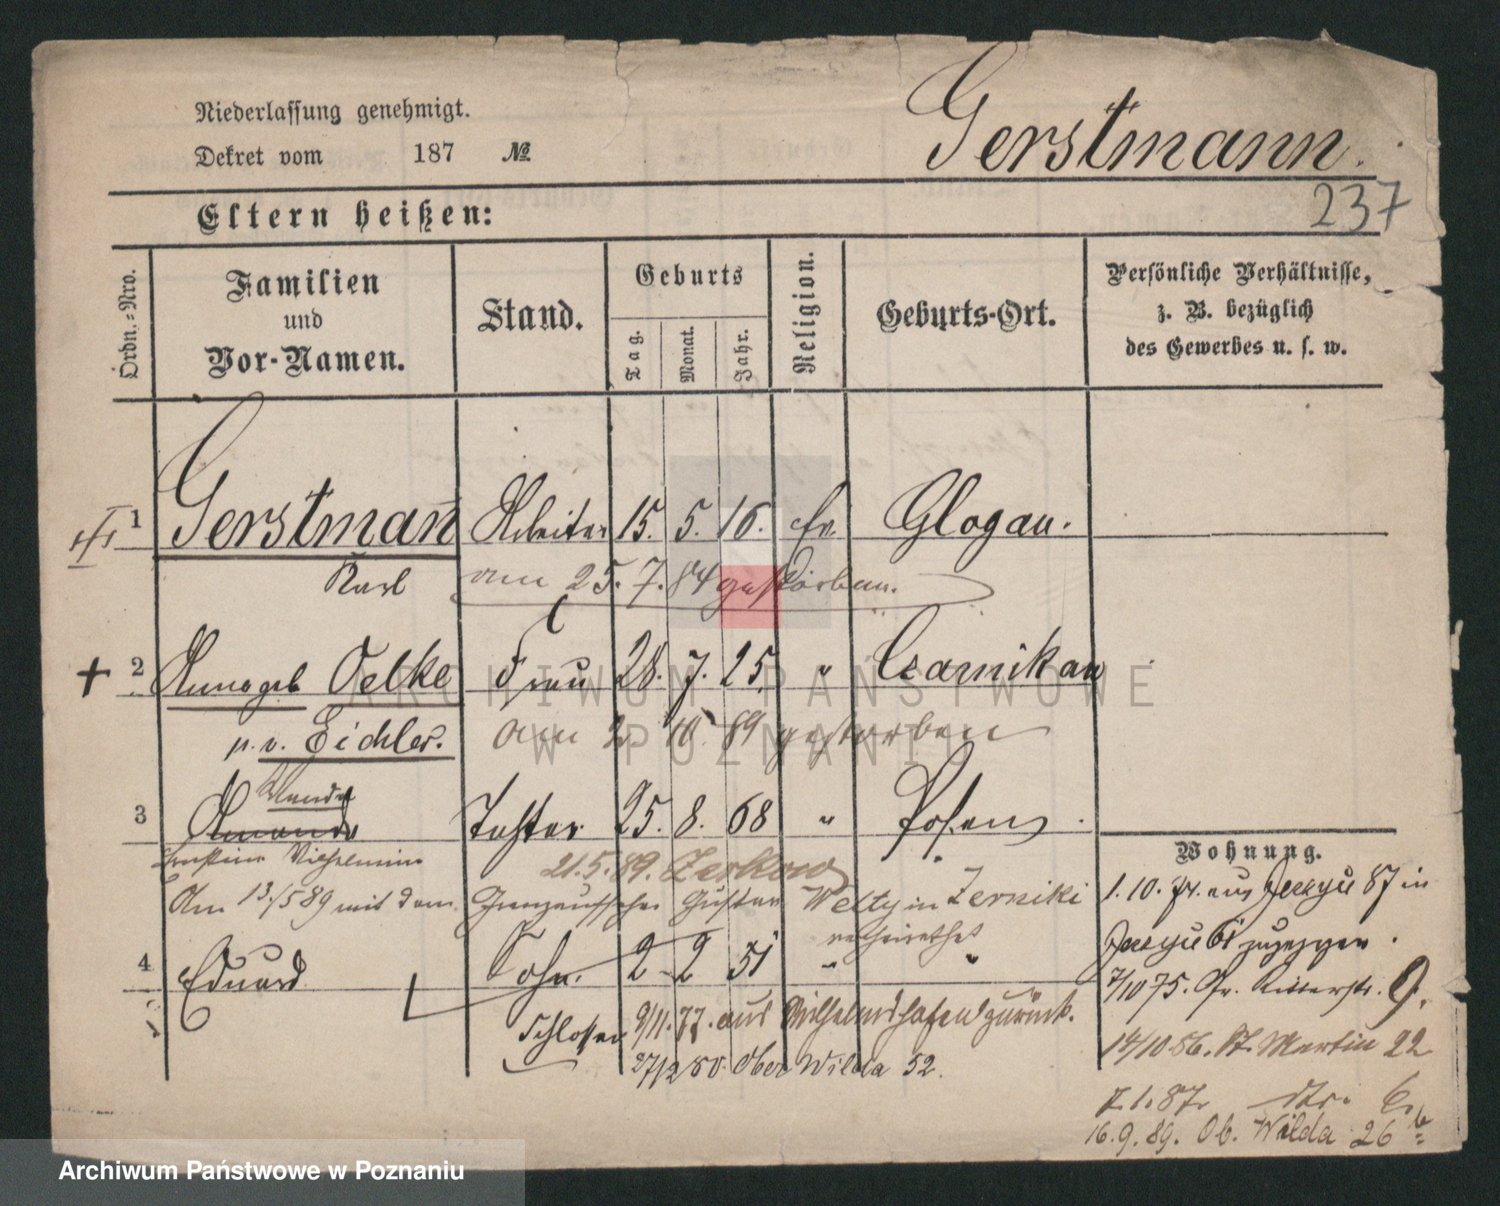 Niederlassung genehmigt.
Gerstmann.
Dekret vom 187 №
237
Eltern heißen:
Ordn.-Nro.
Familien und Vor-Namen.
Stand.
Geburts
Tag.
Monat.
Jahr.
Religion.
Geburts-Ort.
Persönliche Verhältnisse, z. B. bezüglich des Gewerbes u. s. w.
1 Gerstmañ Arbeiter 15. 5. 16. ev. Glogau.
Karl am 25. 7. 84 gestorben.
+ 2 Anna geb Oelke Frau 28. 7. 25. " Czarnikau
ARCHIWUM PAŃSTWOWE
W POZNANIU
p. v. Eichler. am 2 10 89 gestorben
Wanda
3 Amanda Tochter 25. 8. 68 " Posen.
Wohnung.
Ernstine Wilhelmine 21.5.89. Zerkow
Am 13/5 89 mit dem Grenzaufseher Gustav Welty in Zerniki
verheirathet
1. 10. 87 in
zugezogen.
4 Eduard Sohn. 2 2 51 " "
7/10 75. Gr. Ritterstr. 9.
Schlosser 9/11. 77. aus Wilhelmshafen zurück.
27/2 80. Ober Wilda 52.
14/10 86. St. Martin 22
7. 1. 87. 6.
16. 9. 89. Ob. Wilda 26
Archiwum Państwowe w Poznaniu